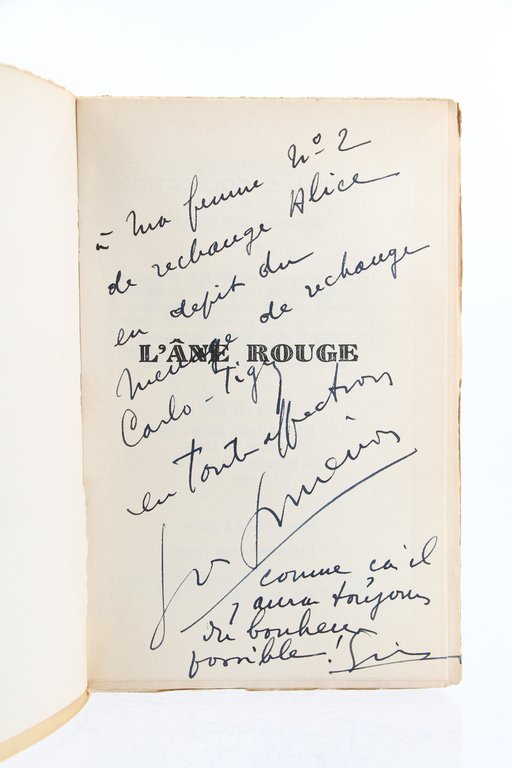 à ma femme N° 2
de rechange Alice
en depit du
menage de rechange
L'ÂNE ROUGE
Carlo - Tigy
en toute affection
Simenon
comme ca il
y aura toujours
du bonheur
possible! Sim